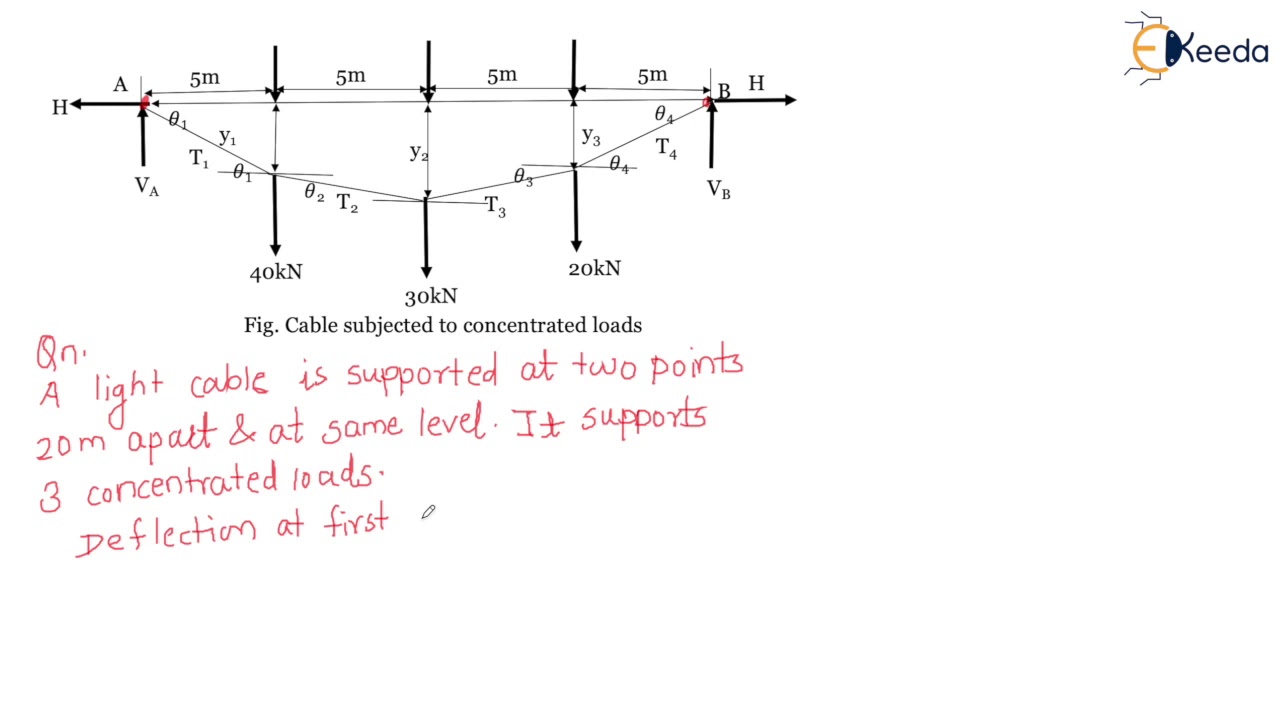 EKeeda
A 5m 5m 5m 5m B H
H
θ1 y1 y2 y3 θ4
T1 T4
VA θ1 θ2 T2 θ3 T3 θ4 VB
40kN 20kN
30kN
Fig. Cable subjected to concentrated loads
Qn.
A light cable is supported at two points
20m apart & at same level. It supports
3 concentrated loads.
Deflection at first